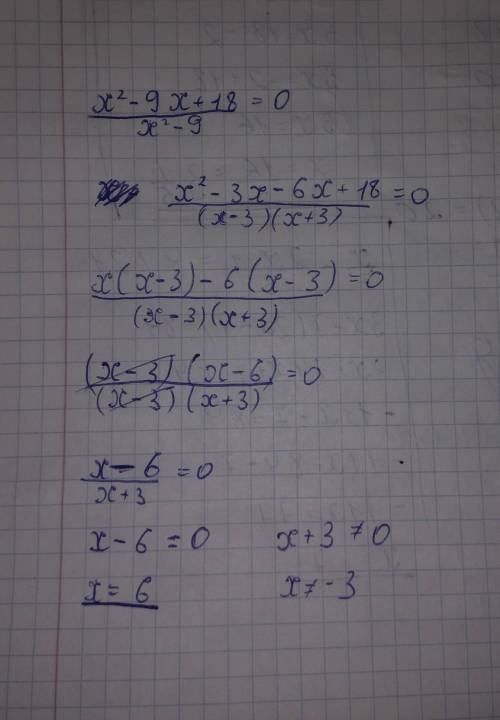 x² - 9x + 18 / x² - 9 = 0
x² - 3x - 6x + 18 / (x-3)(x+3) = 0
x(x-3) - 6(x-3) / (x-3)(x+3) = 0
(x-3)(x-6) / (x-3)(x+3) = 0
x - 6 / x+3 = 0
x - 6 = 0 x+3 ≠ 0
x = 6 x ≠ -3